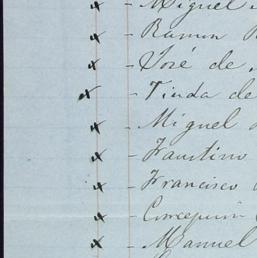 x - Miguel
x - Ramon
x - José de
x - Tinda de
x - Miguel
x - Faustino
x - Francisco
x - Concepcion
x - Manuel